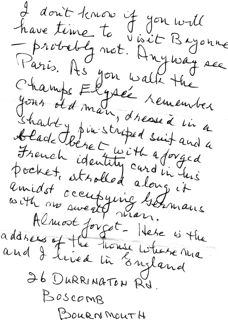 I don't know if you will
have time to visit Bayonne
– probebly not. Anyway see
Paris. As you walk the
Champs Elysée remember
your old man, dressed in a
shabby pin-striped suit and a
black beret with a forged
French identity card in his
pocket, strolled along it
amidst occupying Germans
with no sweaty man.
Almost forgot – Here is the
address of the house where ma
and I lived in England
26 DURRINGTON RD.
BOSCOMB
BOURNMOUTH